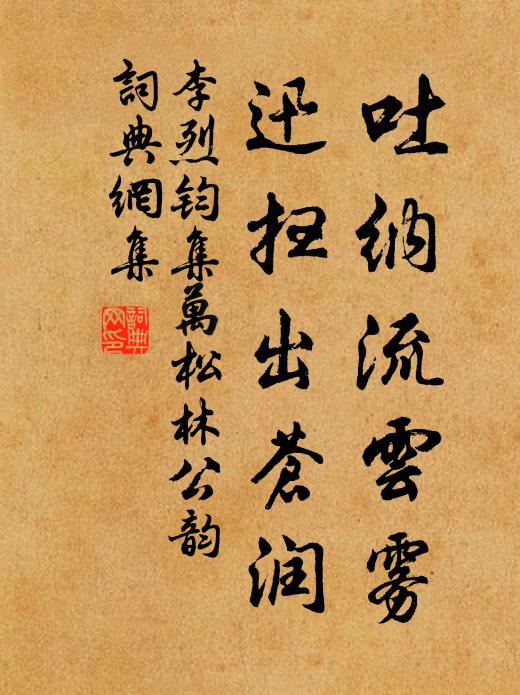 吐纳流雲雾
迅扫出蒼润
李烈钧集萬松林公韵
詞典網集
詞典网印